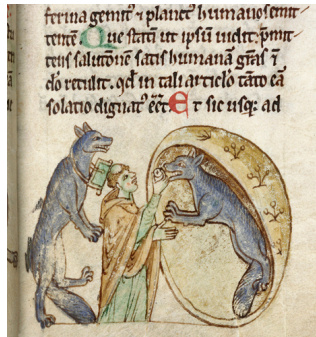 ferina gemitꝰ ⁊ planctꝰ humanos emit-
tentē Que statī ut ipsū uidit. p̄mit-
tens salutōnē satis humanā grās ⁊
dō retulit. qđ in tali articlo tāto eā
solatio dignatꝰ eēt. Et sic usqꝫ ad